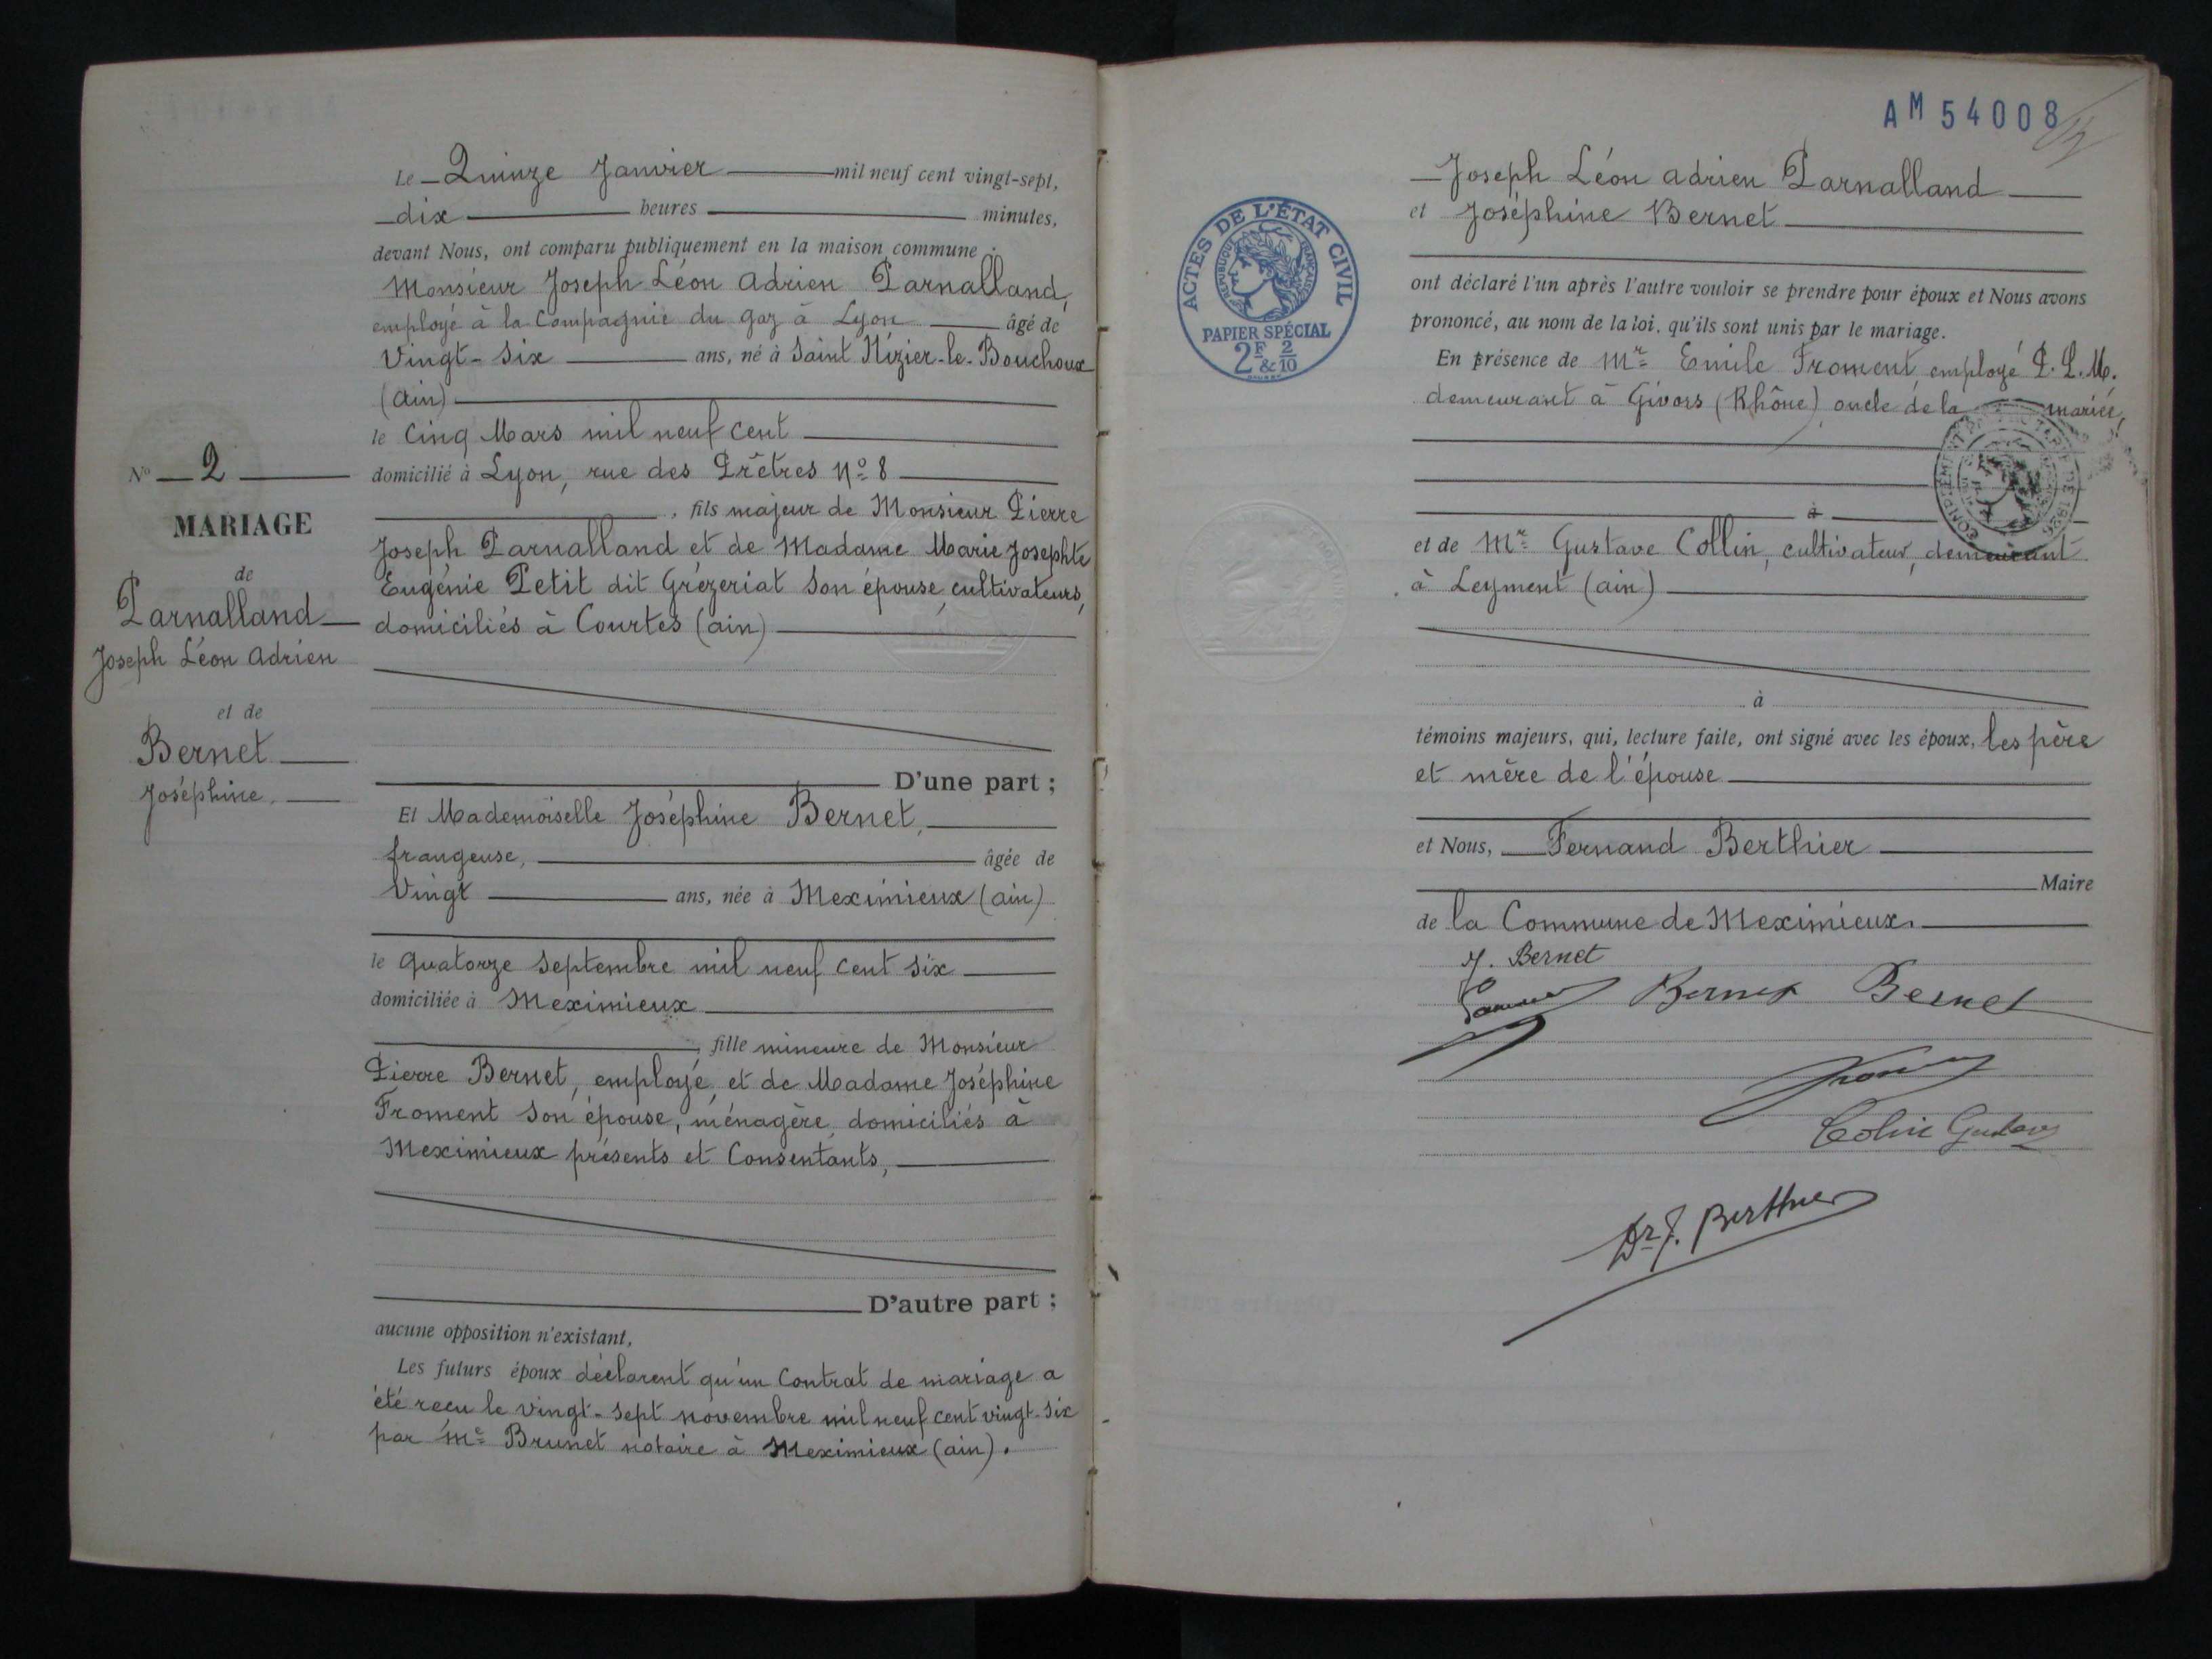 N° 2
MARIAGE
de
Parnalland
Joseph Léon Adrien
et de
Bernet
Joséphine.
Le Quinze Janvier mil neuf cent vingt-sept,
dix heures minutes,
devant Nous, ont comparu publiquement en la maison commune :
Monsieur Joseph Léon Adrien Parnalland,
employé à la Compagnie du gaz à Lyon âgé de
Vingt-six ans, né à Saint Nizier-le-Bouchoux
(Ain)
le Cinq Mars mil neuf cent
domicilié à Lyon, rue des Prêtres N° 8
, fils majeur de Monsieur Pierre
Joseph Parnalland et de Madame Marie Josephte
Eugénie Petit dit Grézeriat son épouse, cultivateurs,
domiciliés à Courtes (ain)
D'une part ;
Et Mademoiselle Joséphine Bernet,
frangeuse, âgée de
Vingt ans, née à Meximieux (ain)
le quatorze septembre mil neuf cent six
domiciliée à Meximieux
, fille mineure de Monsieur
Pierre Bernet, employé, et de Madame Joséphine
Froment son épouse, ménagère, domiciliés à
Meximieux présents et Consentants,
D'autre part ;
aucune opposition n'existant,
Les futurs époux déclarent qu'un Contrat de mariage a
été reçu le vingt-sept novembre mil neuf cent vingt-six
par Me Brunet notaire à Meximieux (ain).
AM 54008
ACTES DE L'ÉTAT CIVIL
RÉPUBLIQUE FRANÇAISE
PAPIER SPÉCIAL
2F & 2/10
Joseph Léon Adrien Parnalland
et Joséphine Bernet
ont déclaré l'un après l'autre vouloir se prendre pour époux et Nous avons
prononcé, au nom de la loi, qu'ils sont unis par le mariage.
En présence de Mr Emile Froment, employé P.L.M.
demeurant à Givors (Rhône) oncle de la mariée,
à
et de Mr Gustave Collin, cultivateur, demeurant
à Leyment (ain)
à
témoins majeurs, qui, lecture faite, ont signé avec les époux, les père
et mère de l'épouse
et Nous, Fernand Berthier
Maire
de la Commune de Meximieux.
J. Bernet
Bernet Bernet
Colin Gustave
Dr F. Berthier